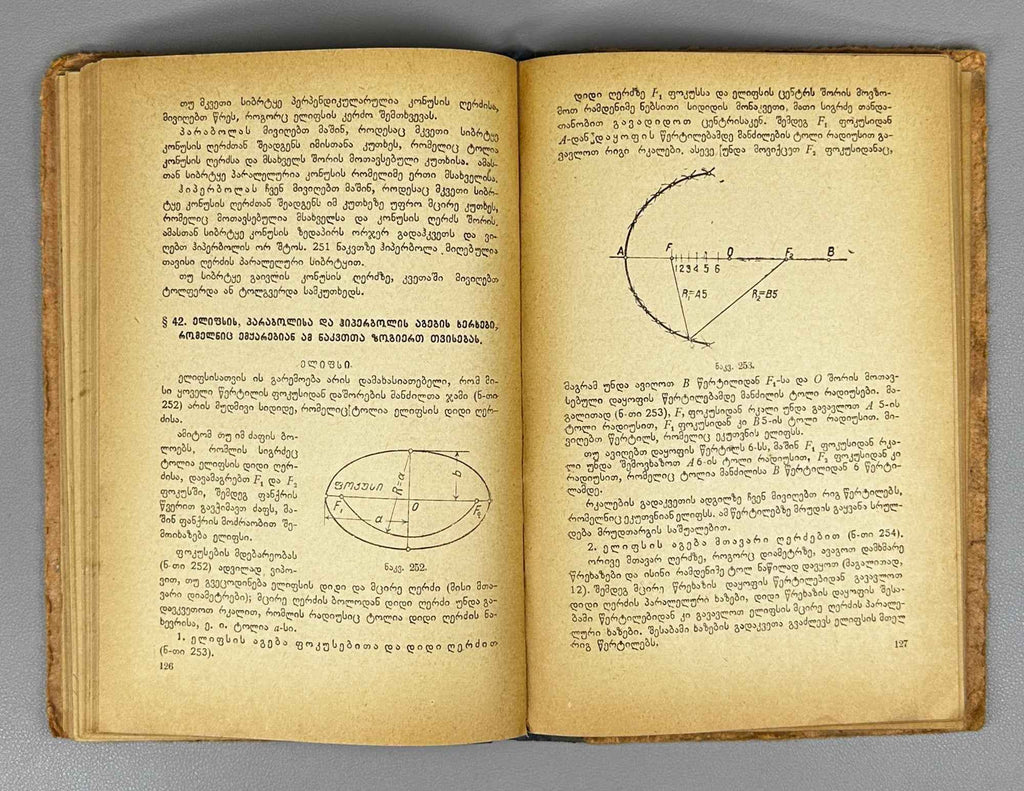 თუ მკვეთი სიბრტყე პერპენდიკულარულია კონუსის ღერძისა,
მივიღებთ წრეს, როგორც ელიფსის კერძო შემთხვევას.
პარაბოლას მივიღებთ მაშინ, როდესაც მკვეთი სიბრტყე
კონუსის ღერძთან შეადგენს იმისთანა კუთხეს, რომელიც ტოლია
კონუსის ღერძსა და მსახველს შორის მოთავსებული კუთხისა. ამას-
თან სიბრტყე პარალელურია კონუსის რომელიმე ერთი მსახველისა.
ჰიპერბოლას ჩვენ მივიღებთ მაშინ, როდესაც მკვეთი სიბრ-
ტყე კონუსის ღერძთან შეადგენს იმ კუთხეზე უფრო მცირე კუთხეს,
რომელიც მოთავსებულია მსახველსა და კონუსის ღერძს შორის.
ამასთან სიბრტყე კონუსის ზედაპირს ორჯერ გადაჰკვეთს და ვი-
ღებთ ჰიპერბოლის ორ შტოს. 251 ნაკვთზე ჰიპერბოლა მიღებულია
თავისი ღერძის პარალელური სიბრტყით.
თუ სიბრტყე გაივლის კონუსის ღერძზე, კვეთაში მივიღებთ
ტოლფერდა ან ტოლგვერდა სამკუთხედს.
§ 42. ელიფსის, პარაბოლისა და ჰიპერბოლის აგების ხერხები,
რომელნიც ემყარებიან ამ ნაკვთთა ზოგიერთ თვისებას.
ელიფსი.
ელიფსისათვის ის გარემოება არის დამახასიათებელი, რომ მი-
სი ყოველი წერტილის ფოკუსიდან დაშორების მანძილთა ჯამი (ნ-თი
252) არის მუდმივი სიდიდე, რომელიც ტოლია ელიფსის დიდი ღერ-
ძისა.
ამიტომ თუ იმ ძაფის ბო-
ლოებს, რომლის სიგრძეც
ტოლია ელიფსის დიდი ღერ-
ძისა, დავამაგრებთ F₁ და F₂
ფოკუსში, შემდეგ ფანქრის
წვერით გავჭიმავთ ძაფს, მა-
შინ ფანქრის მოძრაობით შე-
მოიხაზება ელიფსი.
ფოკუსების მდებარეობას
(ნ-თი 252) ადვილად ვიპო-
ფოკუსი
R=a
b
F₁
a
O
F₂
ნაკვ. 252.
ვით, თუ გვეცოდინება ელიფსის დიდი და მცირე ღერძი (მისი მთა-
ვარი დიამეტრები); მცირე ღერძის ბოლოდან დიდი ღერძი უნდა გა-
დავკვეთოთ რკალით, რომლის რადიუსიც ტოლია დიდი ღერძის ნა-
ხევრისა, ე. ი. ტოლია a-სი.
1. ელიფსის აგება ფოკუსებითა და დიდი ღერძით
(ნ-თი 253).
126
დიდი ღერძზე F₁ ფოკუსსა და ელიფსის ცენტრს შორის მოვზო-
მოთ რამდენიმე ნებსითი სიდიდის მონაკვეთი, მათი სიგრძე თანდა-
თანობით გავადიდოთ ცენტრისაკენ. შემდეგ F₁ ფოკუსიდან
A-დან დაყოფის წერტილებამდე მანძილების ტოლი რადიუსით გა-
ვავლოთ რიგი რკალები, ასევე უნდა მოვიქცეთ F₂ ფოკუსიდანაც,
A
F₁
1 2 3 4 5 6
O
F₂
B
R₁=A5
R₂=B5
ნაკვ. 253.
მაგრამ უნდა ავიღოთ B წერტილიდან F₁-სა და O შორის მოთავ-
სებული დაყოფის წერტილებამდე მანძილის ტოლი რადიუსები. მა-
გალითად (ნ-თი 253), F₁ ფოკუსიდან რკალი უნდა გავავლოთ A 5-ის
ტოლი რადიუსით, F₂ ფოკუსიდან კი B5-ის ტოლი რადიუსით. მი-
ვიღებთ წერტილს, რომელიც ეკუთვნის ელიფსს.
თუ ავიღებთ დაყოფის წერტილს 6-სს, მაშინ F₁ ფოკუსიდან რკა-
ლი უნდა შემოვხაზოთ A6-ის ტოლი რადიუსით, F₂ ფოკუსიდან კი
რადიუსით, რომელიც ტოლია მანძილისა B წერტილიდან 6 წერტი-
ლამდე.
რკალების გადაკვეთის ადგილზე ჩვენ მივიღებთ რიგ წერტილებს,
რომელნიც ეკუთვნიან ელიფსს. ამ წერტილებზე მრუდის გაყვანა სრულ-
დება მრუდთარგის საშუალებით.
2. ელიფსის აგება მთავარი ღერძებით (ნ-თი 254).
ორივე მთავარ ღერძზე, როგორც დიამეტრზე, ავაგოთ დამხმარე
წრეხაზები და ისინი რამდენიმე ტოლ ნაწილად დავყოთ (მაგალითად,
12). შემდეგ მცირე წრეხაზის დაყოფის წერტილებიდან გავავლოთ
დიდი ღერძის პარალელური ხაზები, დიდი წრეხაზის დაყოფის შესა-
ბამი წერტილებიდან კი გავავლოთ ელიფსის მცირე ღერძის პარალე-
ლური ხაზები. შესაბამი ხაზების გადაკვეთა გვაძლევს ელიფსის მთელ
რიგ წერტილებს.
127